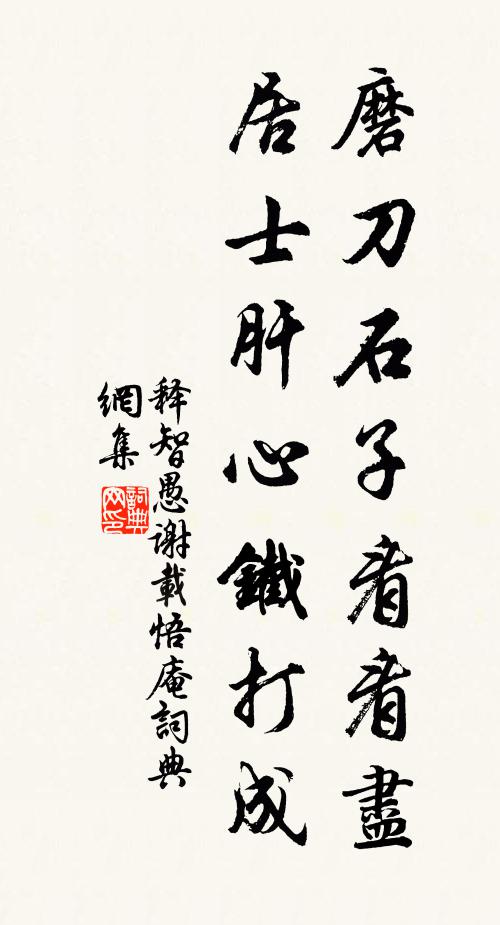 磨刀石子看看盡
居士肝心鐵打成
释智愚謝載悟庵詞典
網集
詞典网印